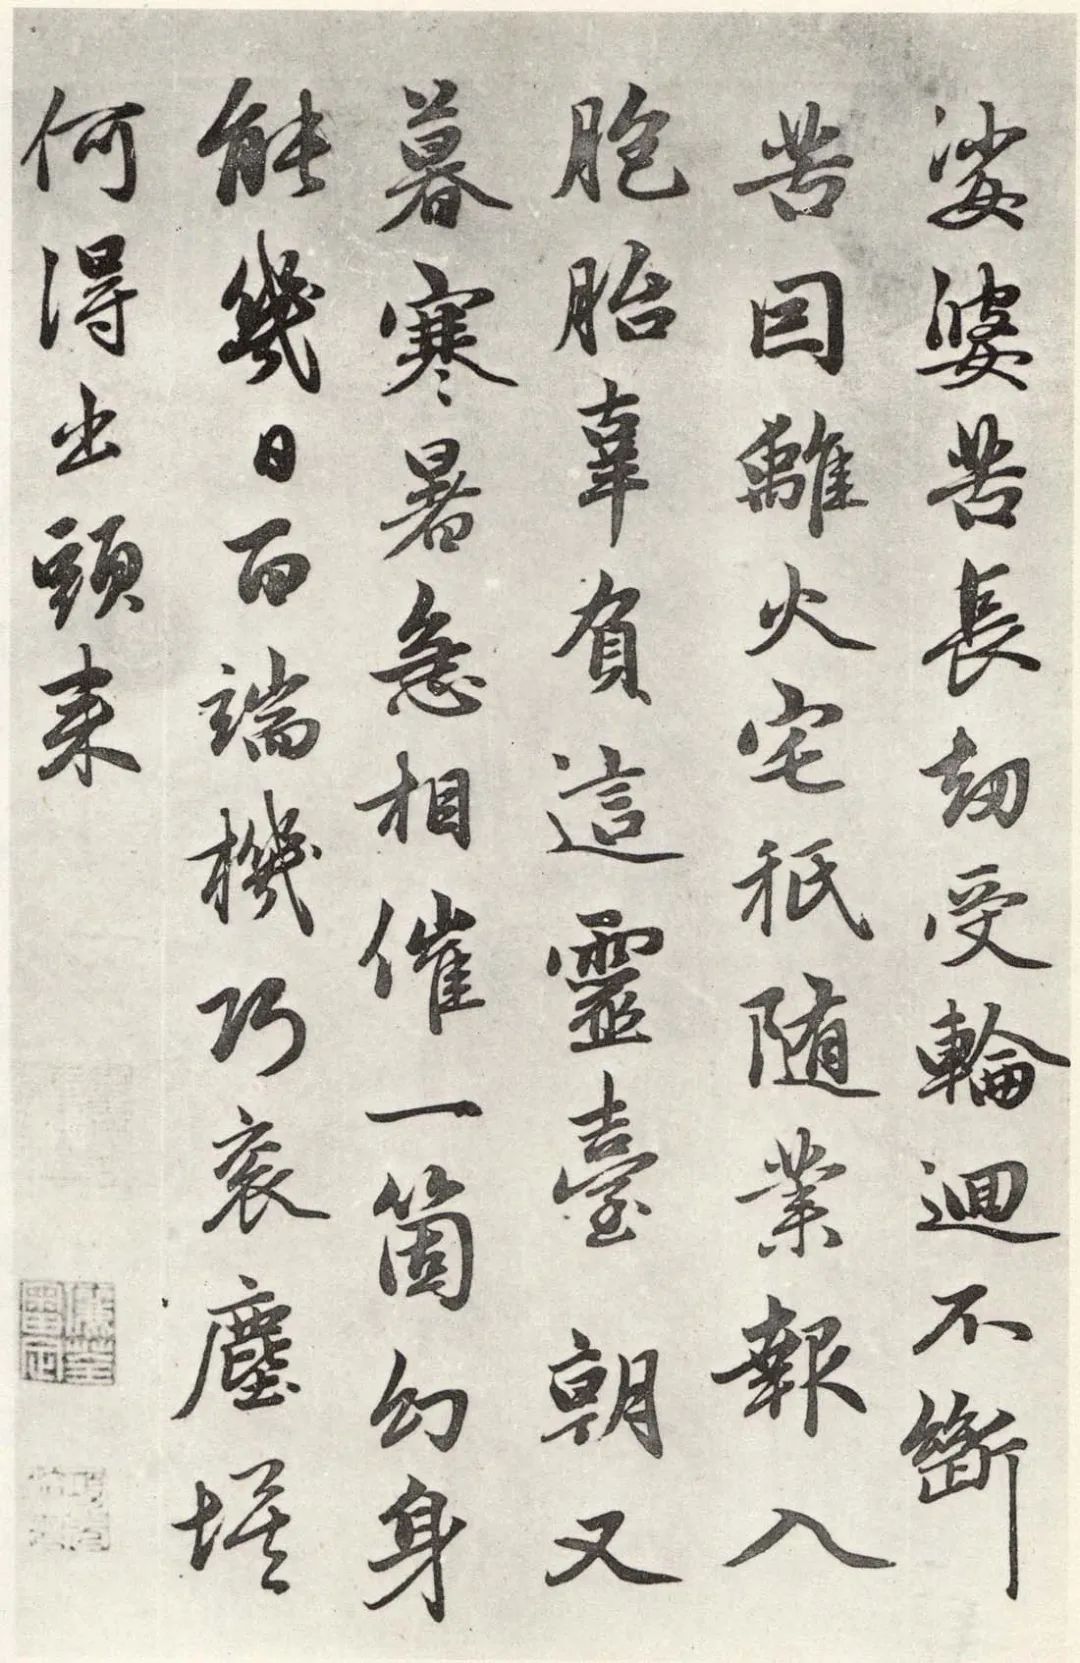 娑婆苦長劫受輪迴不斷
苦因離火宅祇随業報入
胞胎辜負這靈臺 朝又
暮寒暑急相催一箇幻身
能幾日百端機巧衮塵埃
何得出頭来